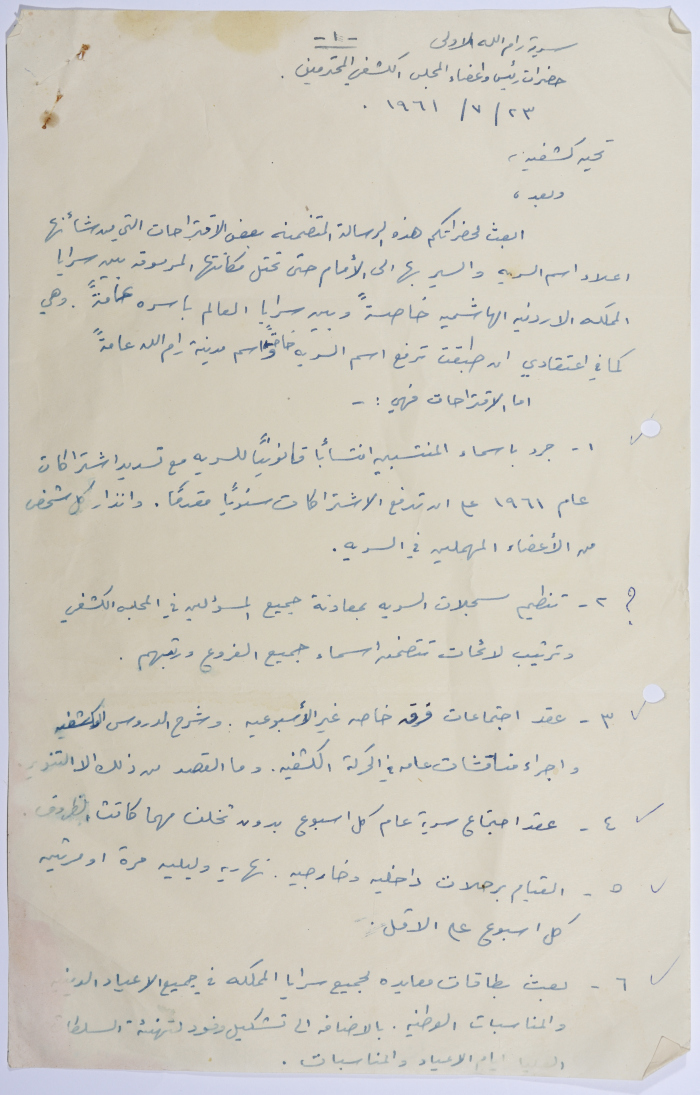 - ١ -
سرية رام الله الاولى
حضرات رئيس واعضاء المجلس الكشفي المحترمين .
٢٣ / ٧ / ١٩٦١ .
تحيه كشفيه ،
وبعد ،
ابعث لحضراتكم هذه الرسالة المتضمنه بعض الاقتراحات التي من شأنها
اعلاء اسم السريه والسير بها الى الأمام حتى تحتل مكانتها المرموقه بين سرايا
المملكه الاردنيه الهاشميه خاصةً وبين سرايا العالم باسره عامةً . وهي
كما في اعتقادي ان طبقت ترفع اسم السريه خاصةً واسم مدينة رام الله عامةً
اما الاقتراحات فهي : -
١ - جرد باسماء المنتسبين انتسابًا قانونيًا للسريه مع تسديد اشتراكات
عام ١٩٦١ على ان تدفع الاشتراكات سنويًا مقدمًا . وانذار كل شخص
من الأعضاء المهملين في السريه .
؟ ٢ - تنظيم سجلات السريه بمعاونة جميع المسؤلين في المجلس الكشفي
وترتيب لائحات تتضمن اسماء جميع الفروع ورتبهم .
٣ - عقد اجتماعات فرق خاصه غير الأسبوعيه . وشرح الدروس الكشفيه
واجراء مناقشات عامه في الحركة الكشفيه . وما القصد من ذلك الا التنوير
٤ - عقد اجتماع سرية عام كل اسبوع بدون تخلف مهما كانت الظروف .
٥ - القيام برحلات داخليه وخارجيه . نهاريه وليليه مرة او مرتين
كل اسبوع على الاقل .
٦ - بعث بطاقات معايده لجميع سرايا المملكه في جميع الاعياد الدينيه
والمناسبات الوطنيه . بالاضافه الى تشكيل وفود لتهنئة السلطات
العليا ايام الاعياد والمناسبات .